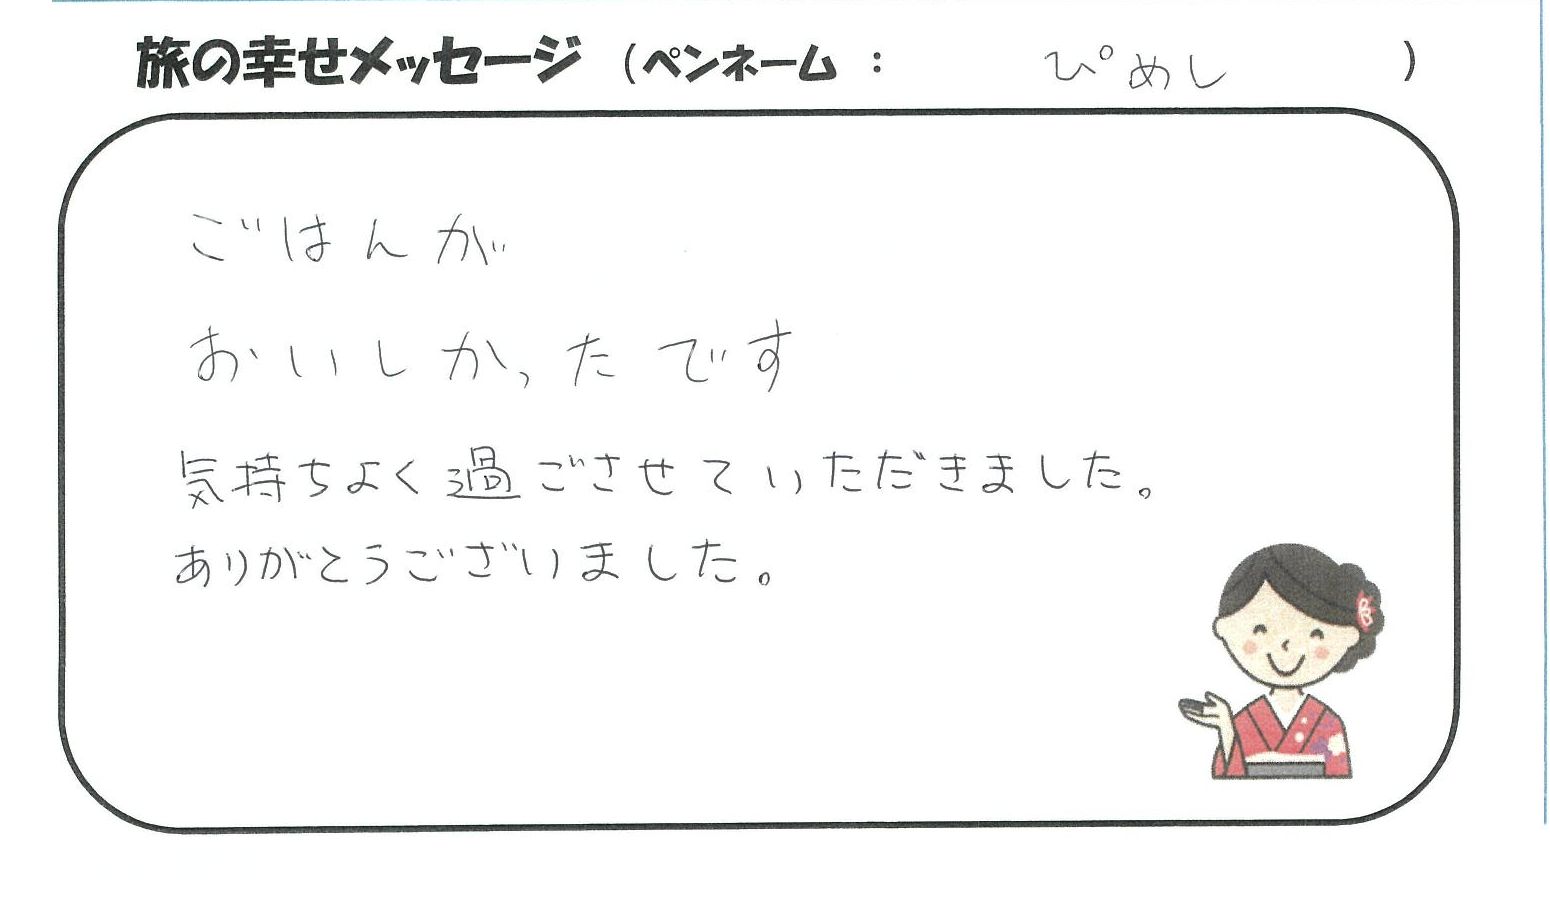 旅の幸せメッセージ (ペンネーム : ぴめし )
ごはんが
おいしかったです
気持ちよく過ごさせていただきました。
ありがとうございました。